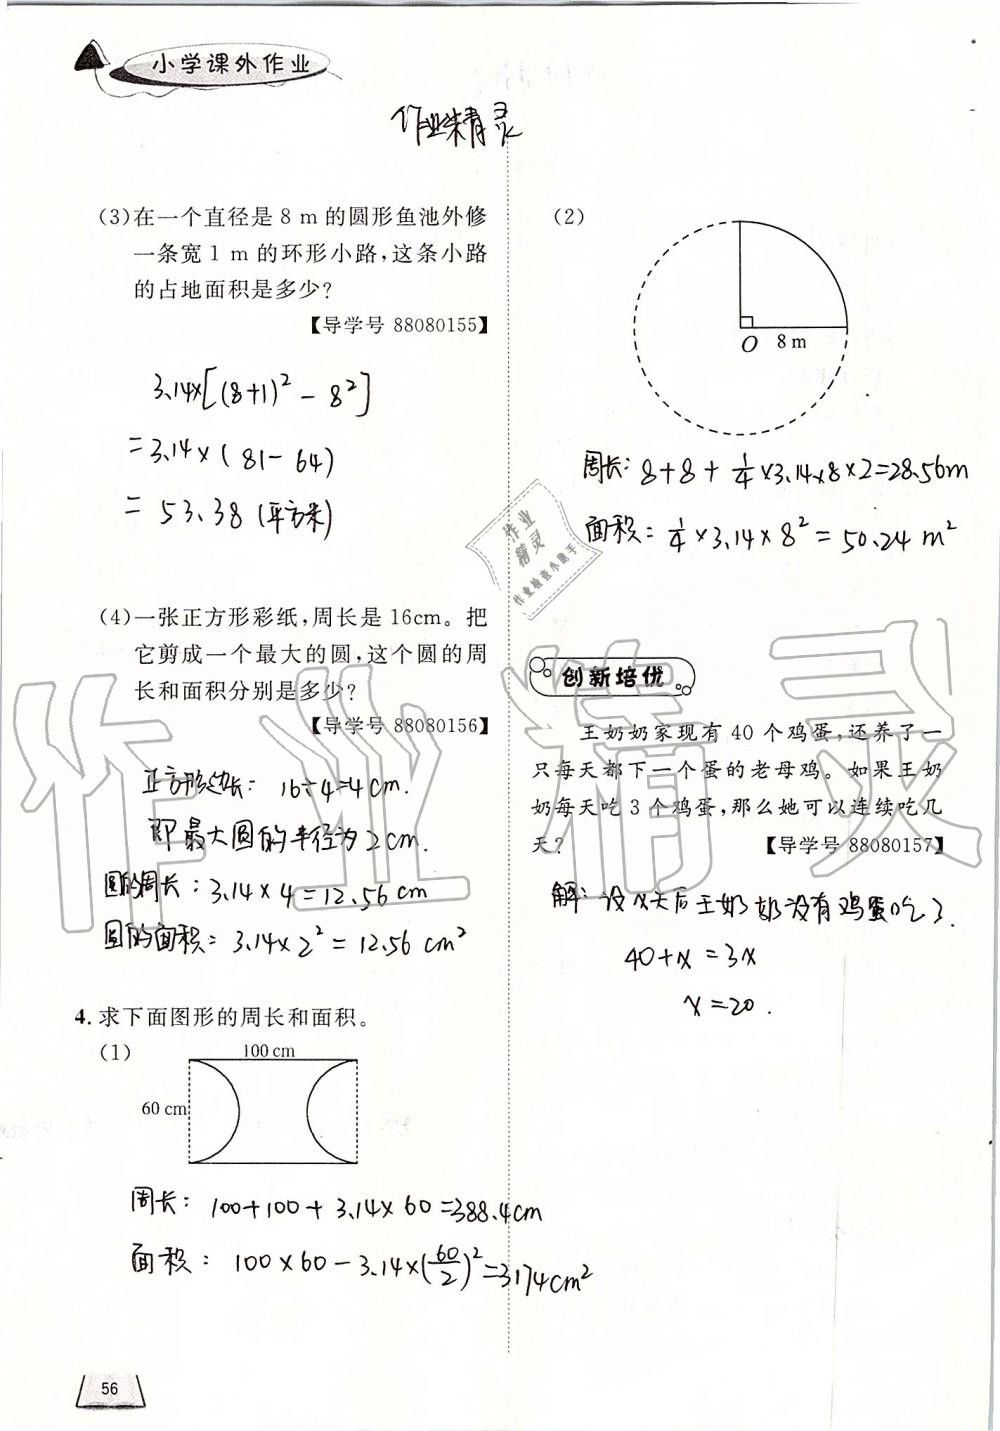 小学课外作业
作业精灵
(3)在一个直径是 8 m 的圆形鱼池外修
一条宽 1 m 的环形小路,这条小路
的占地面积是多少?
【导学号 88080155】
3.14×[(8+1)²-8²]
=3.14×(81-64)
= 53.38 (平方米)
(4)一张正方形彩纸,周长是 16cm。把
它剪成一个最大的圆,这个圆的周
长和面积分别是多少?
【导学号 88080156】
正方形边长: 16÷4=4cm.
即最大圆的半径为2cm.
圆的周长: 3.14×4=12.56cm
圆的面积: 3.14×2²=12.56 cm²
4. 求下面图形的周长和面积。
(1)
100 cm
60 cm
周长: 100+100+3.14×60=388.4cm
面积: 100×60-3.14×(60/2)²=3174cm²
56
(2)
O 8 m
周长: 8+8+1/4×3.14×8×2=28.56m
面积: 1/4×3.14×8²=50.24 m²
作业
精灵
作业检查小助手
创新培优
王奶奶家现有 40 个鸡蛋,还养了一
只每天都下一个蛋的老母鸡。如果王奶
奶每天吃 3 个鸡蛋,那么她可以连续吃几
天?
【导学号 88080157】
解: 设x天后王奶奶没有鸡蛋吃了.
40+x=3x
x=20.
作业精灵